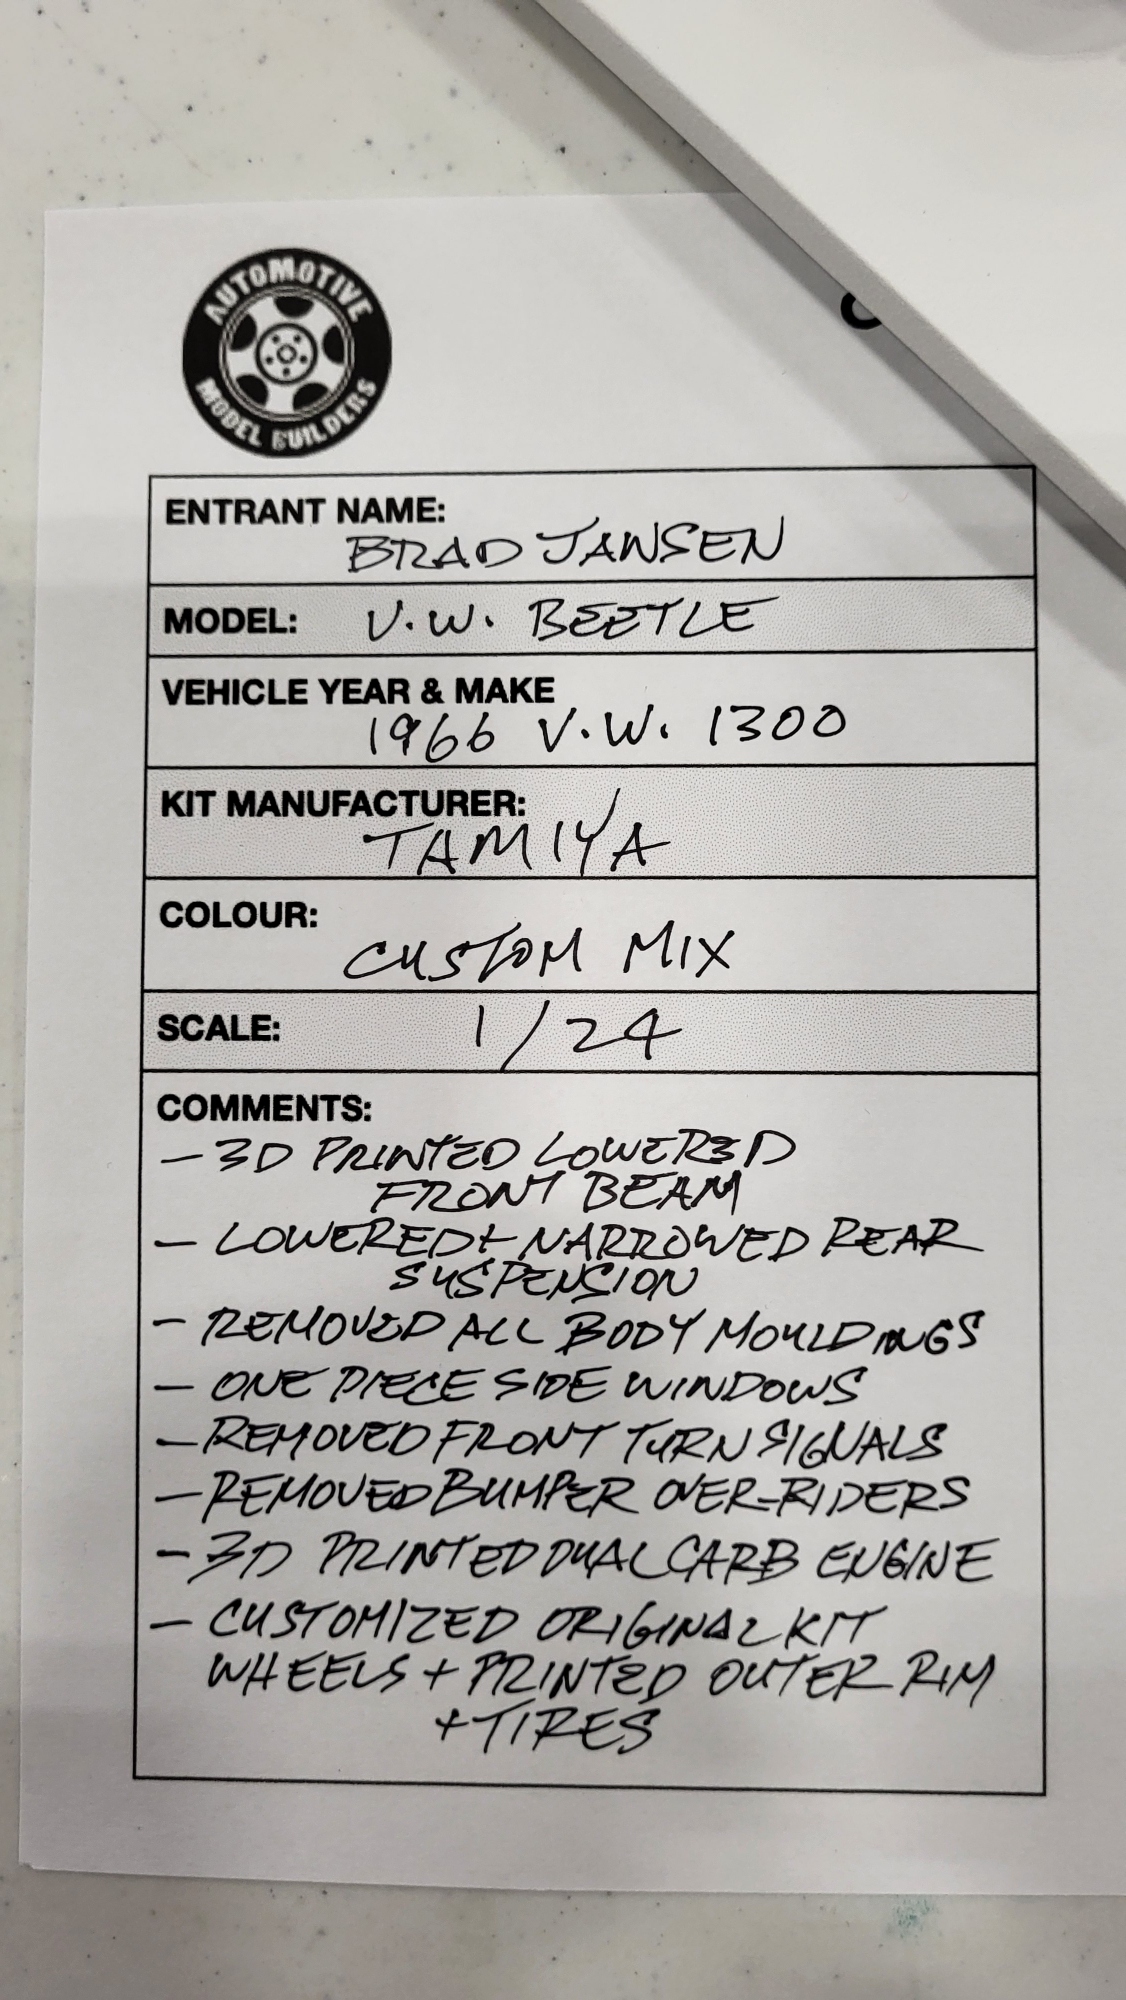 AUTOMOTIVE
MODEL BUILDERS
ENTRANT NAME:
BRAD JANSEN
MODEL: V.W. BEETLE
VEHICLE YEAR & MAKE
1966 V.W. 1300
KIT MANUFACTURER:
TAMIYA
COLOUR:
CUSTOM MIX
SCALE: 1/24
COMMENTS:
- 3D PRINTED LOWERED
FRONT BEAM
- LOWERED + NARROWED REAR
SUSPENSION
- REMOVED ALL BODY MOULDINGS
- ONE PIECE SIDE WINDOWS
- REMOVED FRONT TURN SIGNALS
- REMOVED BUMPER OVER-RIDERS
- 3D PRINTED DUAL CARB ENGINE
- CUSTOMIZED ORIGINAL KIT
WHEELS + PRINTED OUTER RIM
+ TIRES